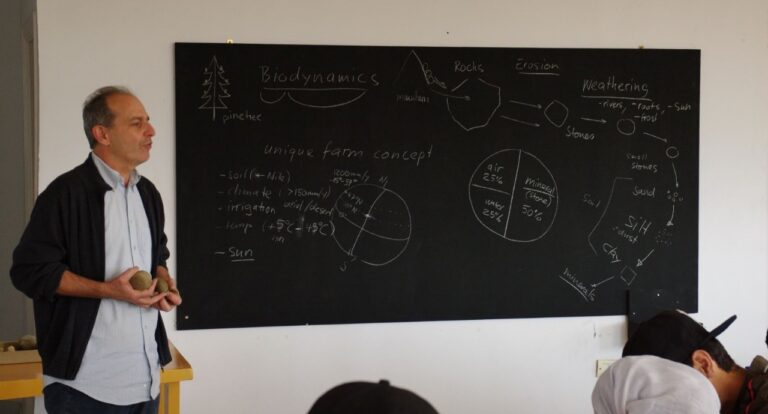 Biodynamics
pinetree
mountains
Rocks
Erosion
Weathering
- rivers, - roots, - Sun
- frost
Stones
small
stones
sand
Silt
dust
Clay
Soil
minerals
unique farm concept
- soil (+ Nile)
- climate
- irrigation
- temp
- Sun
arid/desert
N
S
air
25%
water
25%
mineral
(stone)
50%